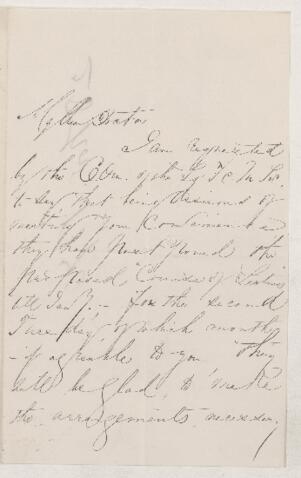 My dear Doctor
I am requested
by the Com. of the
to say that being desirous of
meeting your convenience
they have postponed the
proposed Course of Lectures
till Jany. - for the second
Tuesday of which month,
- if agreeable to you they
will be glad to make
the arrangements necessary